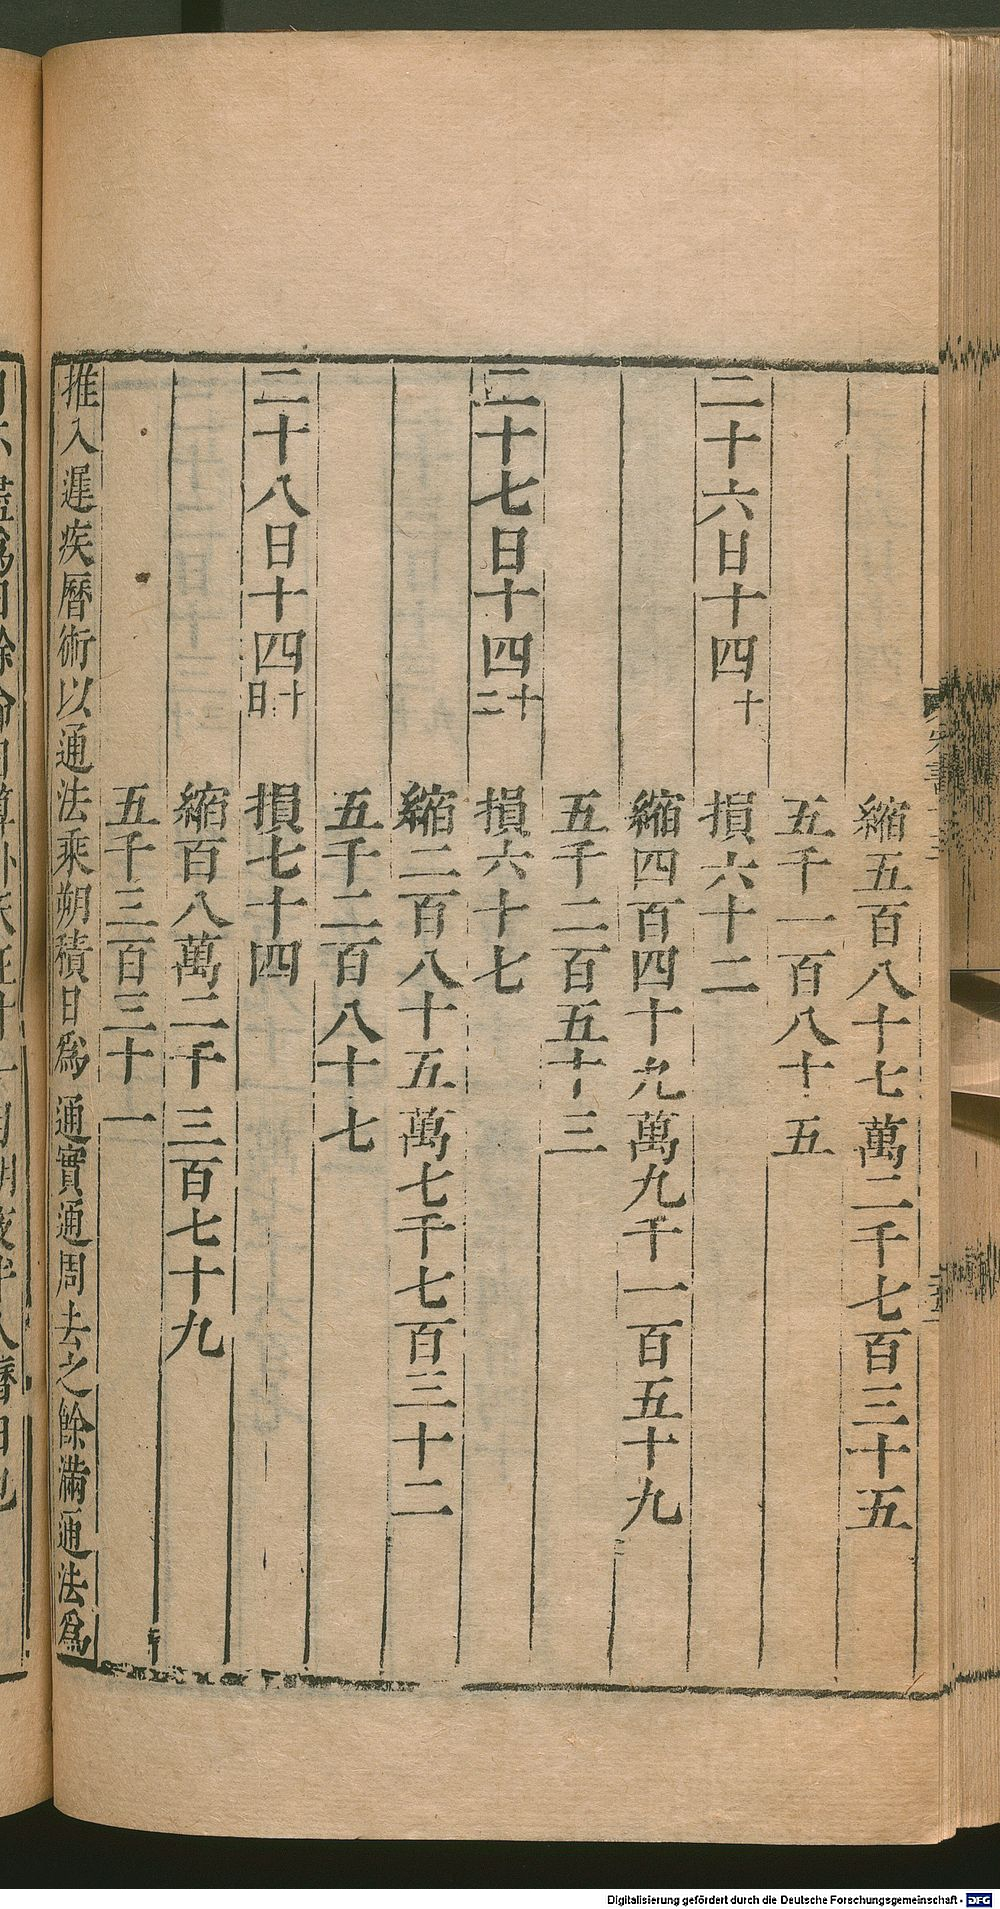 縮五百八十七萬二千七百三十五
五千一百八十五
二十六日十四十 損六十二
縮四百四十九萬九千一百五十九
五千二百五十三
二十七日十四十二 損六十七
縮二百八十五萬七千七百三十二
五千二百八十七
二十八日十四十日 損七十四
縮百八萬二千三百七十九
五千三百三十一
推入遲疾曆術以通法乘朔積日爲通實通周去之餘滿通法爲
Digitalisierung gefördert durch die Deutsche Forschungsgemeinschaft - DFG